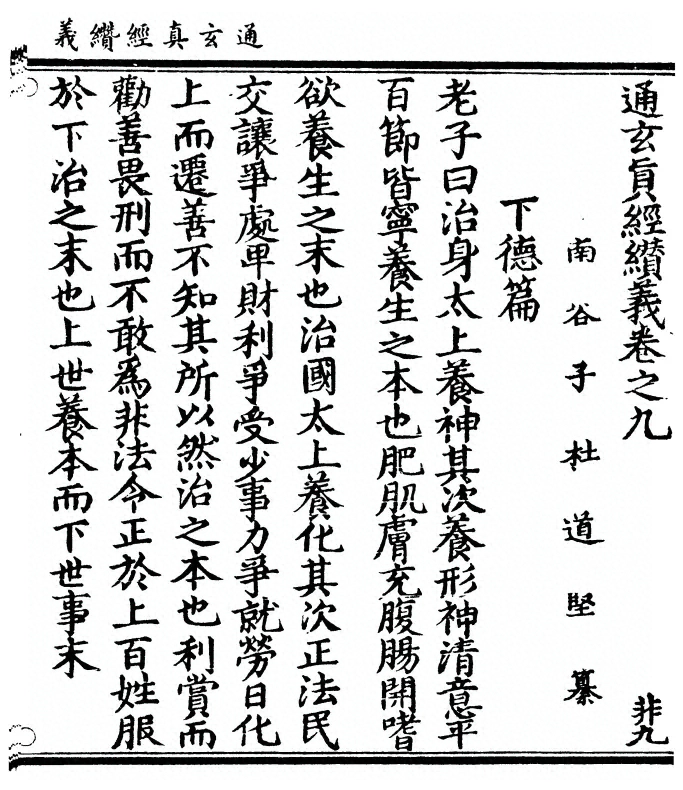 通玄真經纘義
通玄真經纘義卷之九
非九
南谷子杜道堅纂
下德篇
老子曰治身太上養神其次養形神清意平
百節皆寧養生之本也肥肌膚充腹腸開嗜
欲養生之末也治國太上養化其次正法民
交讓爭處卑財利爭受少事力爭就勞日化
上而遷善不知其所以然治之本也利賞而
勸善畏刑而不敢爲非法令正於上百姓服
於下治之末也上世養本而下世事末